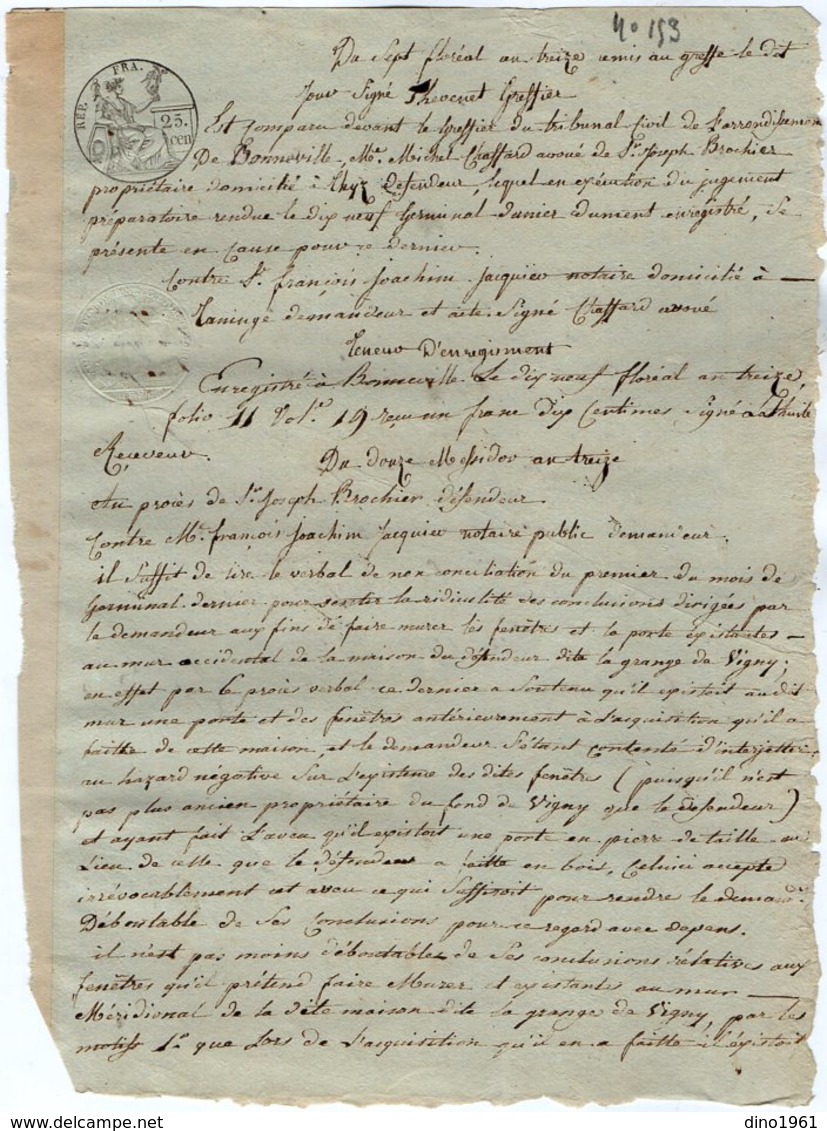 No 153
Du Sept floréal an treize remis au greffe le dit
Jour Signé Thevenet Greffier
REP. FRA.
25.
cen
Est Comparu devant le Greffier du tribunal Civil de L'arrondissement
De Bonneville, Me. Michel Chaffard avoué de Sr. Joseph Brochier
propriétaire domicilié à Thyz Défendeur, lequel en exécution du jugement
préparatoire rendue le dix neuf Germinal dunier dument enregistré, Se
présente en Cause pour ce dernier.
Contre Sr. françois Joachim Jacquier notaire domicilié à
Taninge demandeur et acte. Signé Chaffard avoué
Teneur D'enregisment
Enregistré à Bonneville. Le dix neuf floréal an treize,
folio 11 Vol.e 19 reçu un franc dix Centimes Signé Lathuile
Receveur. Du douze Messidor an treize
Au procès de Sr. Joseph Brochier défendeur
Contre Me. françois Joachim Jacquier notaire public demandeur.
il Suffit de lire le verbal de non conciliation du premier du mois de
Germinal dernier pour sentir la ridiculité des conclusions dirigées par
le demandeur aux fins de faire murer les fenêtres et la porte existantes
au mur occidental de la maison du défendeur dite la grange de Vigny;
en effet par le procès verbal ce dernier a Soutenu qu'il existoit au dit
mur une porte et des fenêtres antérieurement à L'acquisition qu'il a
faitte de cette maison, et le demandeur S'étant contenté d'interjetter
au hazard négative Sur L'existence des dites fenêtres (puisqu'il n'est
pas plus ancien propriétaire du fond de Vigny que le défendeur)
et ayant fait L'aveu qu'il existoit une porte en pierre de taille au
Lieu de celle que le défendeur a faitte en bois, Celuici accepte
irrévocablement cet aveu ce qui Suffiroit pour rendre le demand.r
Déboutable de Ses Conclusions pour ce regard avec dépens.
il n'est pas moins déboutable de Ses conclusions rélatives aux
fenêtres qu'il prétend faire Murer et existantes au mur
Méridional de la dête maison dite la grange de Vigny, par les
motifs 1.o que Lors de L'acquisition qu'il en a faitte il existoit
dino1961